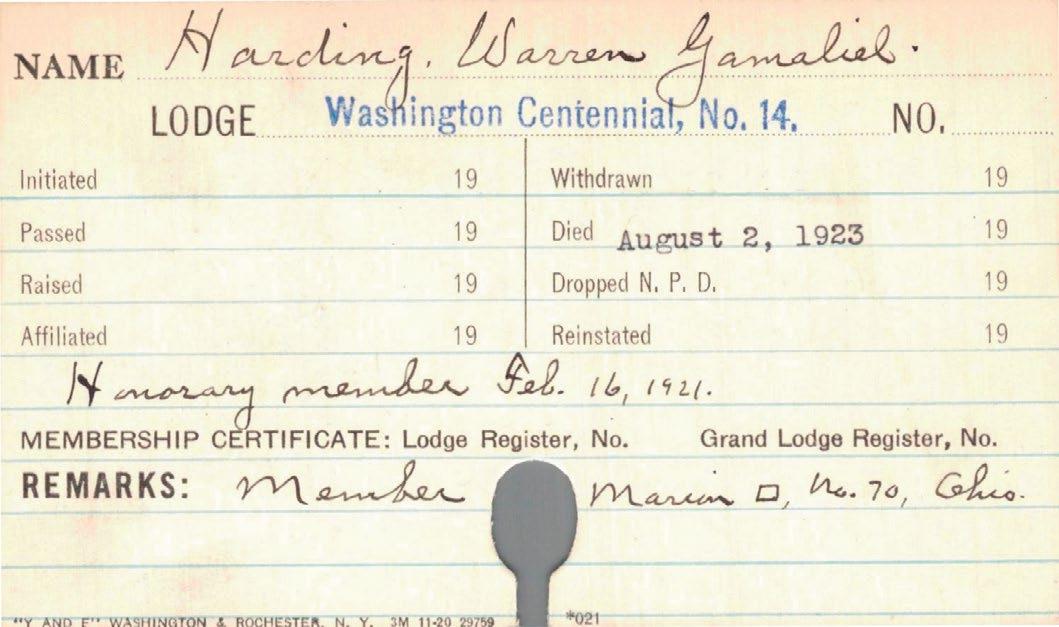 NAME Harding, Warren Gamaliel.
LODGE Washington Centennial, No. 14. NO.
Initiated 19 Withdrawn 19
Passed 19 Died August 2, 1923 19
Raised 19 Dropped N. P. D. 19
Affiliated 19 Reinstated 19
Honorary member Feb. 16, 1921.
MEMBERSHIP CERTIFICATE: Lodge Register, No. Grand Lodge Register, No.
REMARKS: Member Marion □, No. 70, Ohio.
"Y AND E" WASHINGTON & ROCHESTER, N. Y. 3M 11-20 29759 *021